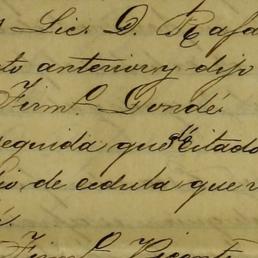 s Lic. D. Rafa
to anterior y dijo
Firmo. Dondé.
seguida que dé citado
io de cedula que
Firmo. Vicente